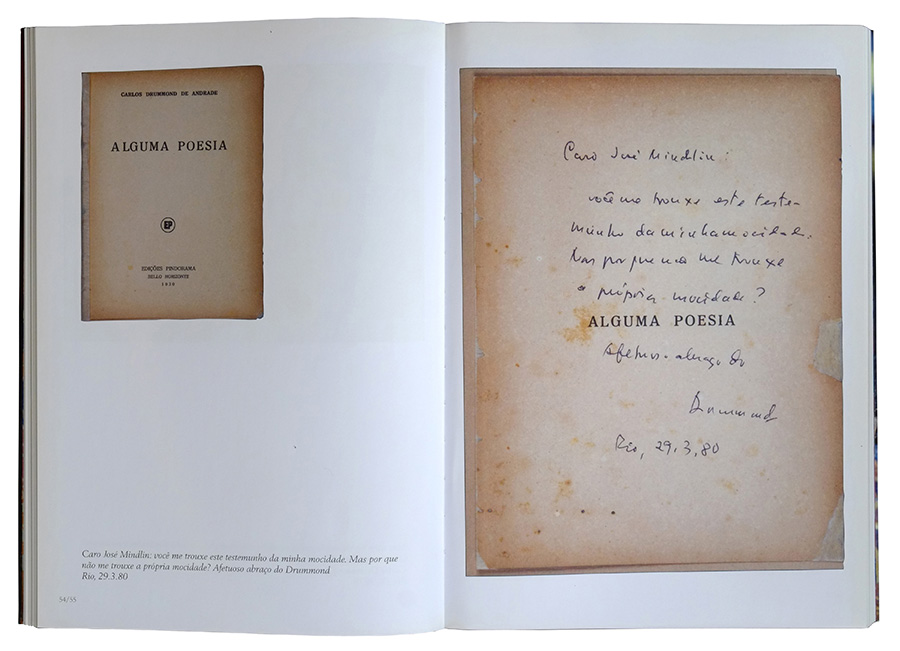 CARLOS DRUMMOND DE ANDRADE
ALGUMA POESIA
EP
EDIÇÕES PINDORAMA
BELLO HORIZONTE
1930
Caro José Mindlin: você me trouxe este testemunho da minha mocidade. Mas por que
não me trouxe a própria mocidade? Afetuoso abraço do Drummond
Rio, 29.3.80
54/55
Caro José Mindlin:
você me trouxe este teste-
munho da minha mocidade.
Mas por que não me trouxe
a própria mocidade?
ALGUMA POESIA
Afetuoso abraço do
Drummond
Rio, 29.3.80